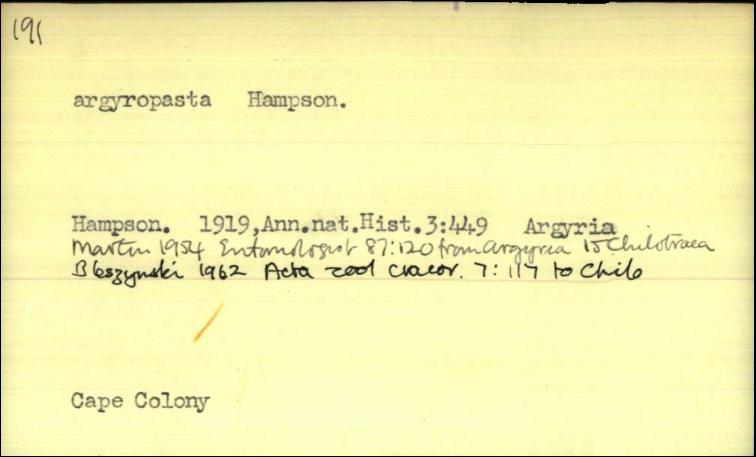 191
argyropasta Hampson.
Hampson. 1919,Ann.nat.Hist.3:449 Argyria
Martin 1954 Entomologist 87:120 from Argyria to Chilotraea
Bleszynski 1962 Acta zool cracov. 7:117 to Chilo
Cape Colony